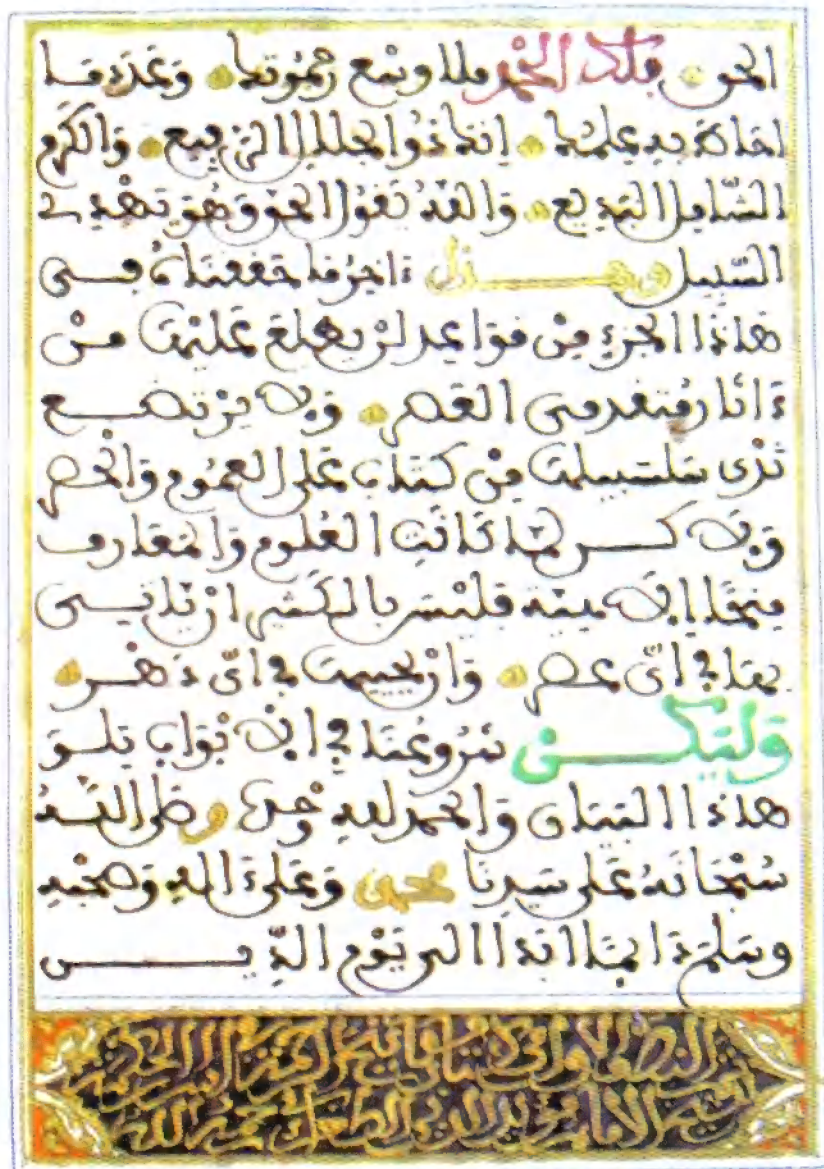 الحق فلك الحمد ملا وسع رحموتك وعدد ما
احاط به علمك انك ذو الجلال الرفيع والكرم
الشامل البديع والله يقول الحق وهو يهدي
السبيل وهذا ءاخر ما جمعناه في
هاذا الجزء من قواعد لن يطلع عليها من
ءاثار متقدمي العصر ولا يرتضع
ثدى سلسبيلها من كتاب على العموم والحصر
ولاكن لما كانت العلوم والمعارف
منحا الاهية فليس بالكثير ان ياتي
بها في اي عصر وان يحييها في اي دهر
وليكن شروعنا في الابواب تلو
هاذا التبيان والحمد لله وحده وصلى الله
سبحانه على سيدنا محمد وعلى ءاله وصحبه
وسلم دايما ابدا الى يوم الدين
الاول
الشيخ الامام